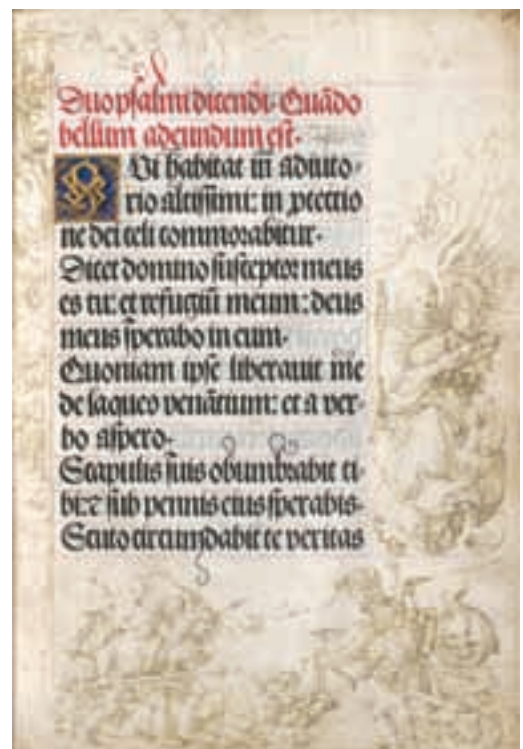 Duo psalmi dicendi. Quādo
bellum adeundum est.
Qui habitat in adiuto-
rio altissimi: in ꝓtectio
ne dei celi commorabitur.
Dicet domino susceptor meus
es tu: et refugiū meum: deus
meus sperabo in eum.
Quoniam ipse liberauit me
de laqueo venātium: et a ver-
bo aspero.
Scapulis suis obumbrabit ti-
bi: ⁊ sub pennis eius sperabis.
Scuto circumdabit te veritas